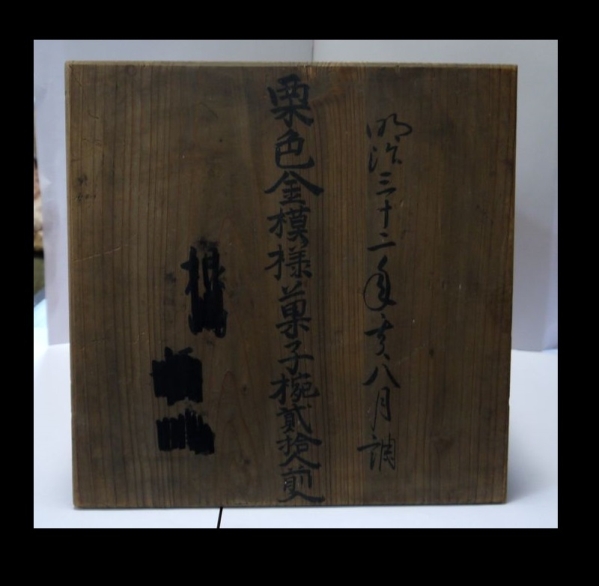 明治三十二年亥八月調
栗色金模様菓子椀貳拾人前入